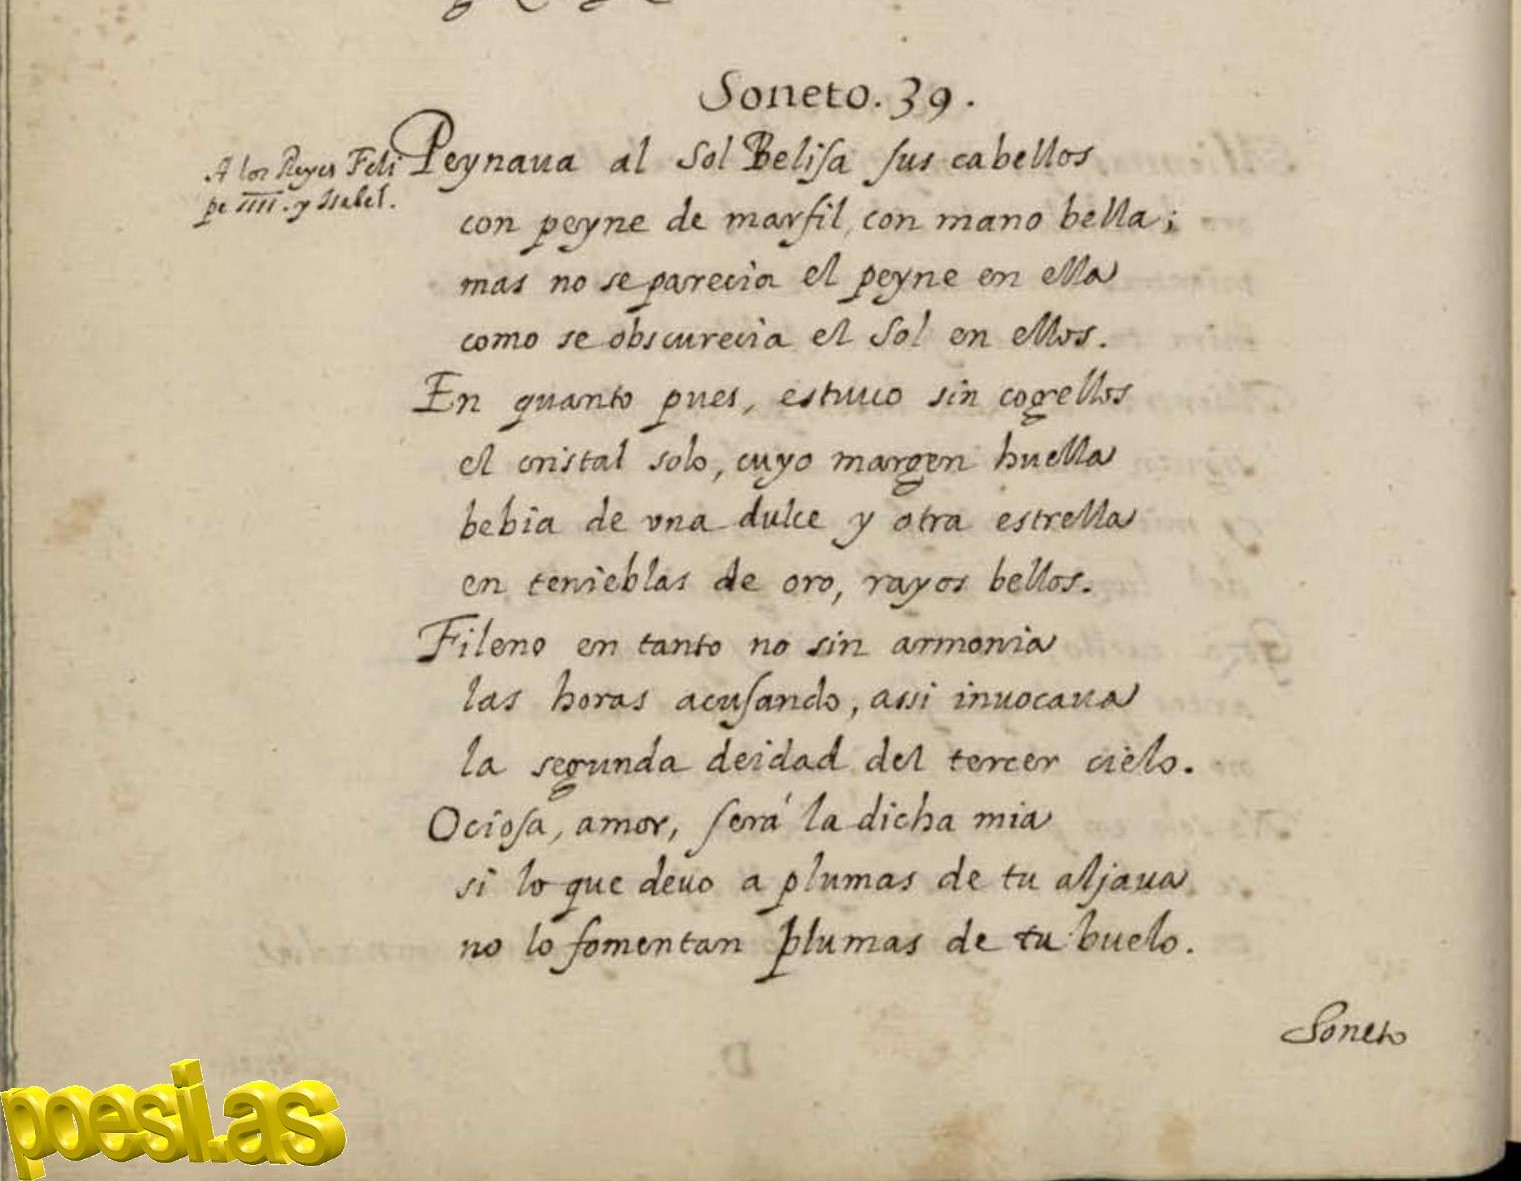 Soneto. 39.
A los Reyes Feli
pe IIII. y Isabel.
Peynaua al Sol Belisa sus cabellos
con peyne de marfil, con mano bella;
mas no se parecia el peyne en ella
como se obscurecia el Sol en ellos.
En quanto pues, estuuo sin cogellos
el cristal solo, cuyo margen huella
bebia de vna dulce y otra estrella
en tenieblas de oro, rayos bellos.
Fileno en tanto no sin armonia
las horas acusando, assi inuocaua
la segunda deidad del tercer cielo.
Ociosa, amor, será la dicha mia
si lo que deuo a plumas de tu aljaua
no lo fomentan plumas de tu buelo.
Soneto
poesi.as